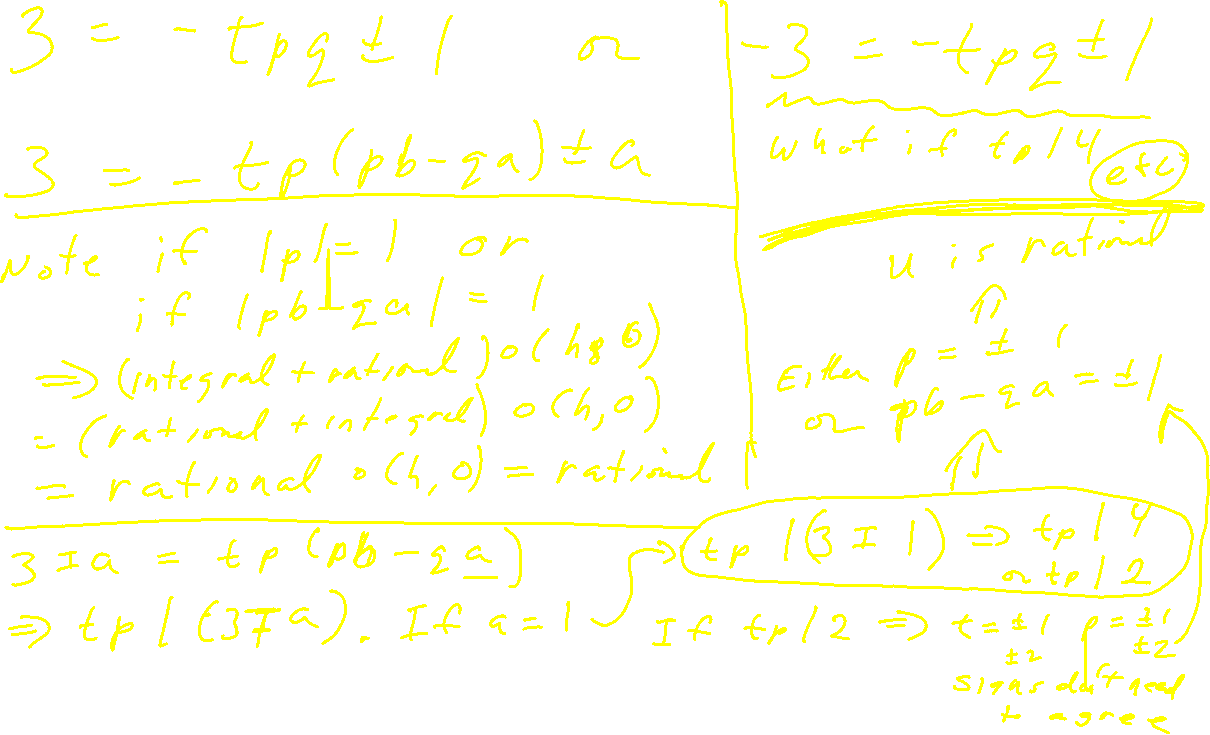 3 = - tpq ± 1 or
3 = - tp(pb-qa) ± a
Note if |p| = 1 or
if |pb-qa| = 1
⇒ (integral + rational) o (h, 0)
= (rational + integral) o (h, 0)
= rational o (h, 0) = rational
3 ∓ a = tp(pb-qa)
⇒ tp | (3∓a). If a = 1
-3 = -tpq ± 1
What if tp|4 etc
u is rational
⇑
Either p = ± 1
or pb-qa = ±1
⇑
tp | (3 ∓ 1) ⇒ tp | 4
or tp | 2
If tp | 2 ⇒ t = ±1 p = ±1
±2 ±2
signs don't need
to agree